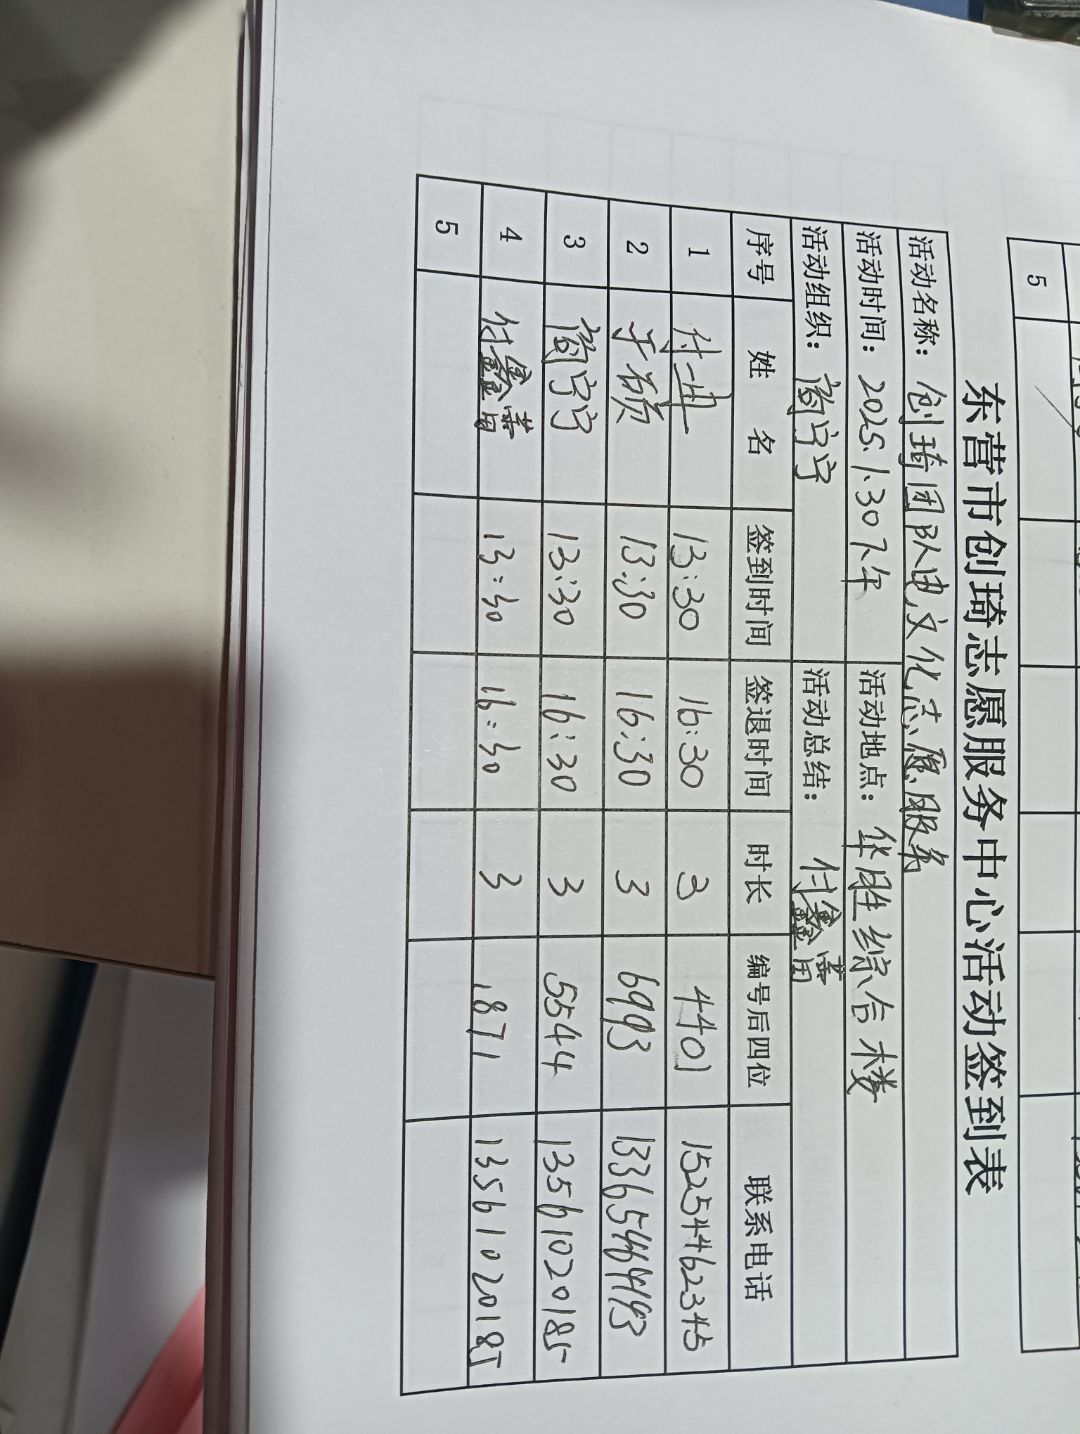 5
东营市创琦志愿服务中心活动签到表
活动名称：创琦团队电文化志愿服务
活动时间：2025.1.30下午 活动地点：华胜综合楼
活动组织：阎宁宁 活动总结：付鑫蕾
序号 姓 名 签到时间 签退时间 时长 编号后四位 联系电话
1 付一冉 13:30 16:30 3 4401 15254462345
2 于硕 13:30 16:30 3 6993 13365464193
3 阎宁宁 13:30 16:30 3 5544 13561020185
4 付鑫蕾 13:30 16:30 3 1871 13561020185
5